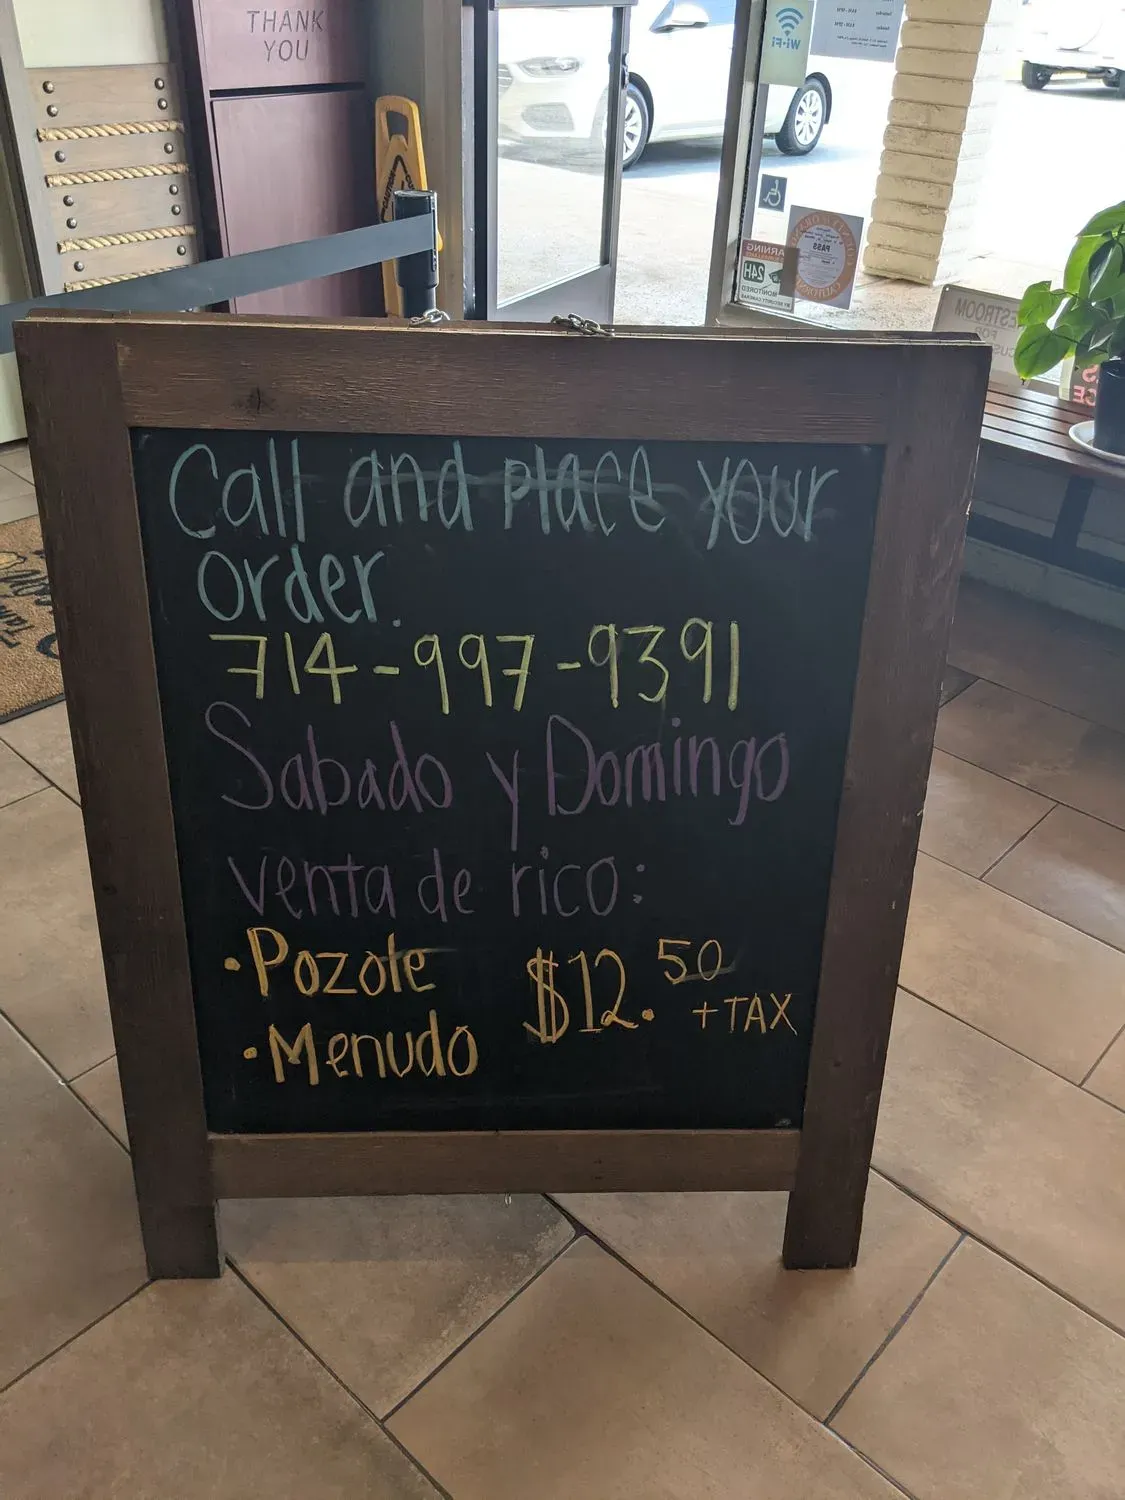 THANK
YOU
Wi-Fi
WARNING
24H
MONITORED
BY SECURITY CAMERAS
PASS
RESTROOM
FOR
Call and place your
order.
714-997-9391
Sabado y Domingo
venta de rico:
• Pozole
• Menudo
$12.50
+TAX